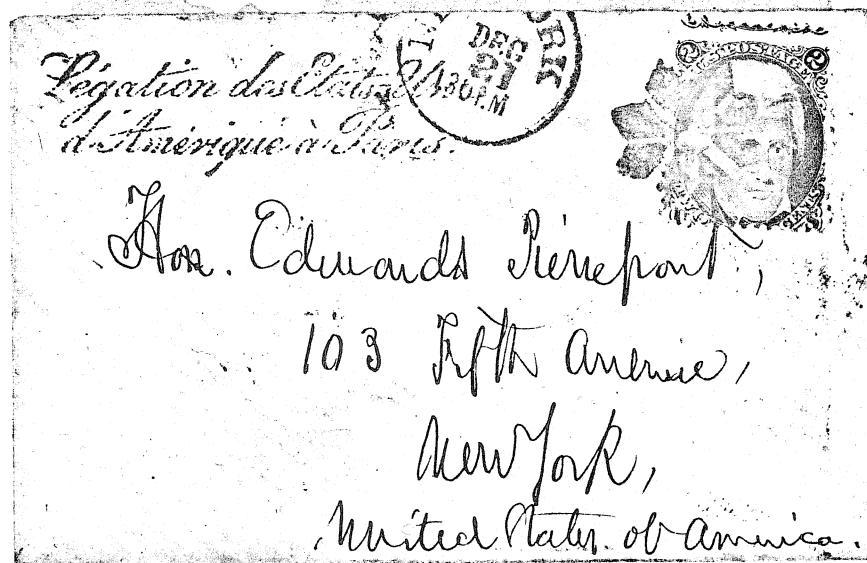 Légation des Etats Unis
d'Amérique à Paris.
YORK
DEC
21
130 P.M
2 2
Hon. Edwards Pierrepont,
103 Fifth Avenue,
New York,
United States of America.